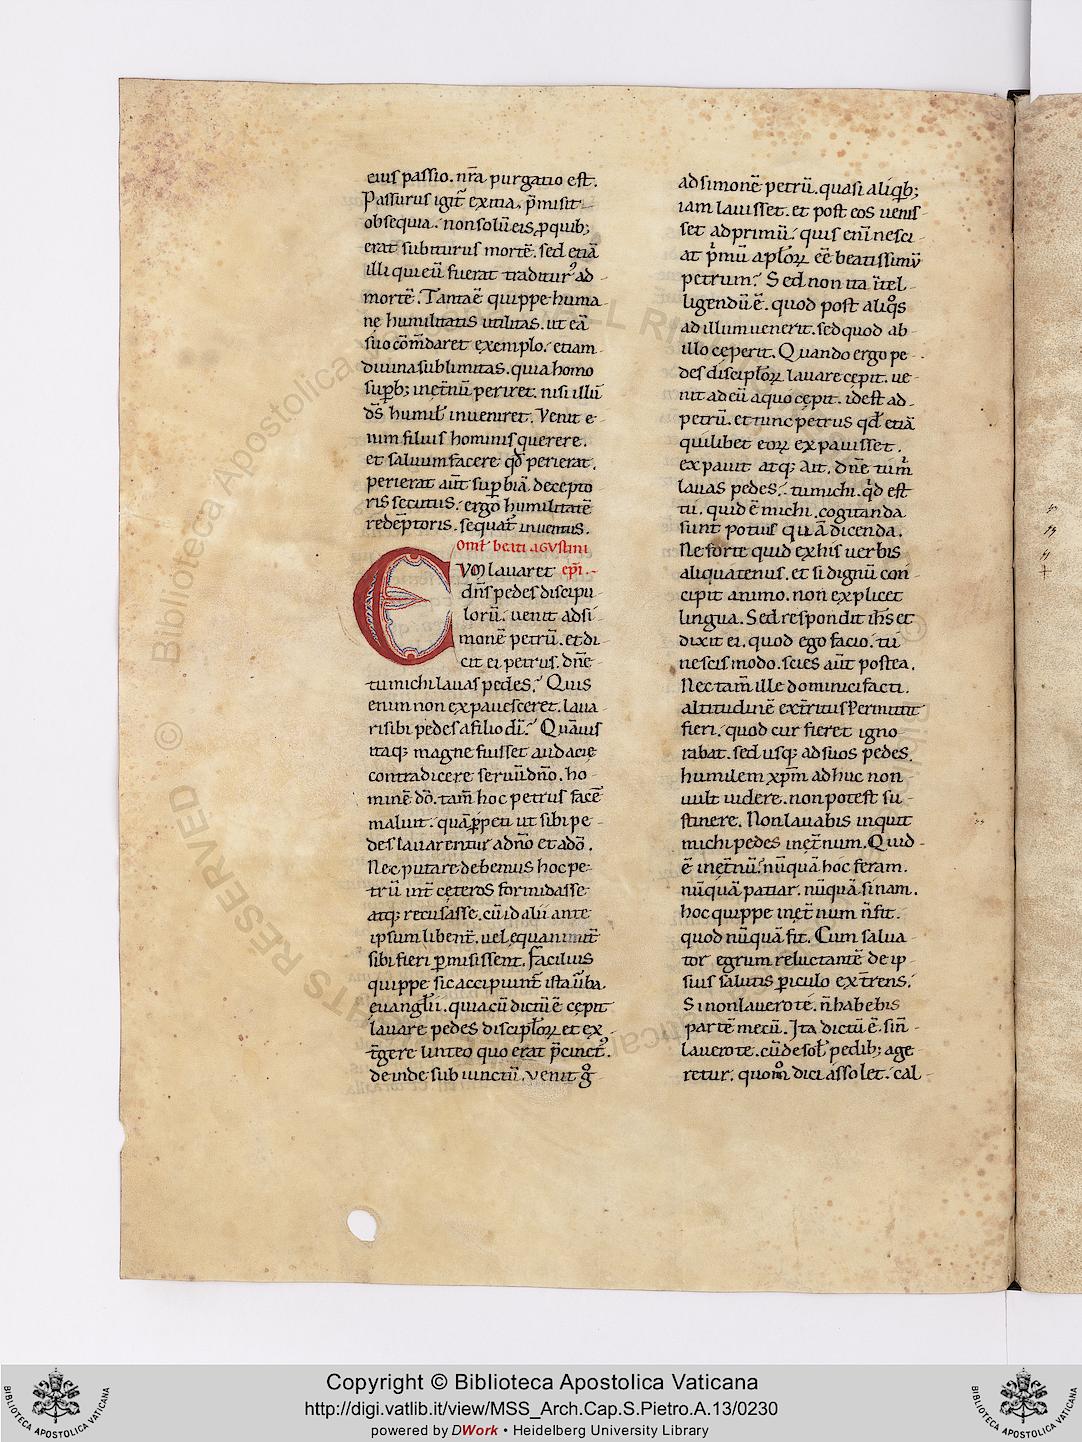 eius passio. nr̄a purgatio est.
Passurus igit̄ exitia. p̄misit
obsequia. non solū eis p quib;
erat subiturus mortē. sed etiā
illi qui eū fuerat traditur᾽ ad
mortē. Tanta ē quippe huma-
nę humilitatis utilitas. ut eā
suo cōm̄daret exemplo. etiam
diuina sublimitas. quia homo
sup̄b; inęt̄nū periret. nisi illū
ds̄ humil̄ inueniret. Venit e-
nim filius hominis querere.
et saluum facere qd̄ perierat.
perierat aūt sup̄biā decepto
ris secutus. ergo humilitatē
redēptoris. sequat̄ inuentus.
Omł beati aGVstini
epī.
CVM lauaret
dn̄s pedes discipu-
lorū. uenit ad si-
monē petrū. et di-
cit ei petrus. dn̄e
tu michi lauas pedes. Quis
enim non expauesceret. laua-
ri sibi pedes a filio dī. Quāuis
itaq; magnę fuisset audacię
contradicere seruū dn̄o. ho-
minē dō. tam̄ hoc petrus facē
maluit. quā ppeti ut sibi pe-
des lauarentur a dn̄o et a dō.
Nec putare debemus hoc pe-
trū int̄ cęteros formidasse
atq; recusasse. cū id alii ante
ipsum libent̄. uel equanimit̄
sibi fieri p̄misissent. facilius
quippe sic accipiunt̄ ista ūba.
euangłii. quia cū dictū ē cepit
lauare pedes discipłoꝝ et ex-
t̄gere linteo quo erat p̄cinct᾽.
deinde sub iunctū. venit gͦ
ad simonē petrū. quasi aliqb;
iam lauisset. et post eos uenis-
set ad primū. quis enī nesci-
at p̍mū apłoꝝ eē beatissimū
petrum. Sed non ita īt̄el-
ligendū ē. quod post aliqͦs
ad illum uenerit. sed quod ab
illo ceperit. Quando ergo pe-
des discipłoꝝ lauare cępit. ue-
nit ad eū a quo cępit. id est ad
petrū. et tunc petrus qd̄ etiā
quilibet eoꝝ expauisset.
expauit atq; ait. dn̄e tu m̍
lauas pedes. tu michi. qd̍ est
tu. quid ē michi. cogitanda
sunt potius quā dicenda.
Ne forte quid ex his uerbis
aliquatenus. et si dignū con-
cipit animo. non explicet
lingua. Sed respondit ih̄s et
dixit ei. quod ego facio. tu
nescis modo. scies aūt postea.
Nec tam̄ ille dominici facti.
altitudinē ext̄ritus permittit
fieri. quod cur fieret igno
rabat. sed usq; ad suos pedes.
humilem xpm̄ ad huc non
uult uidere. non potest su-
stinere. Non lauabis inquit
michi pedes inęt̄num. Quid
ē inęt̄nū. nūquā hoc feram.
nūquā patiar. nūquā sinam.
hoc quippe inęt̄num n̄ fit.
quod nūquā fit. Cum salua-
tor egrum reluctantē de ip-
sius salutis p̄iculo ext̄rens.
Si non lauero te. n̄ habebis
partē mecū. Ita dictū ē. sin̄
lauero te. cū de sol̄ pedib; age
retur. quom̊ dici assolet. cal-
Copyright © Biblioteca Apostolica Vaticana
http://digi.vatlib.it/view/MSS_Arch.Cap.S.Pietro.A.13/0230
powered by DWork • Heidelberg University Library
BIBLIOTECA APOSTOLICA VATICANA
BIBLIOTECA APOSTOLICA VATICANA